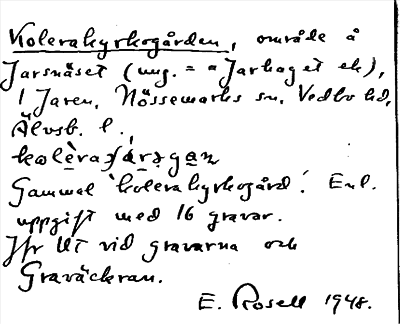 Kolerakyrkogården, område å
Jarsnäset (ung. = "Jarhaget ek),
I Jaren, Nössemarks sn. Vedbo hd,
Älvsb. l.,
Gammal kolerakyrkogård. Enl.
uppgift med 16 gravar.
Jfr Ut vid gravarna och
Graväckran.
E. Rosell 1948.